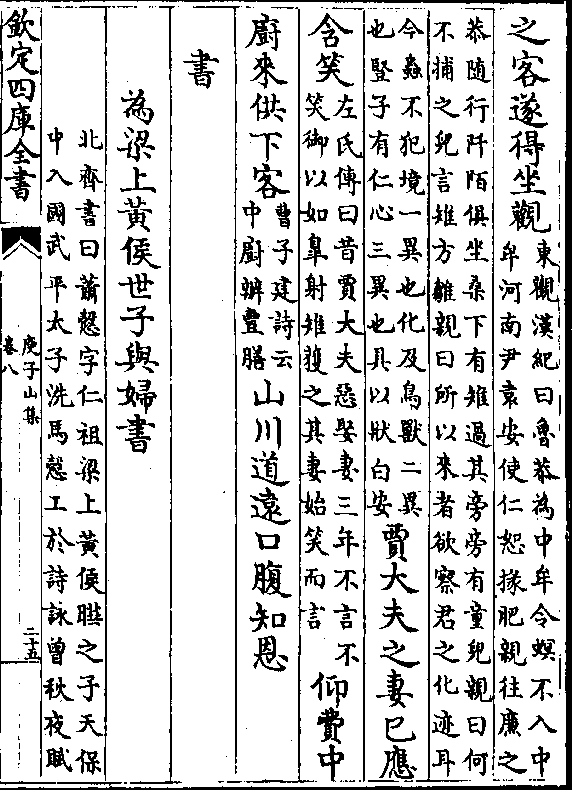 之客遂得坐觀
東觀漢紀曰魯恭為中牟令螟不入中
牟河南尹袁安使仁恕掾肥親往廉之
恭隨行阡陌俱坐桑下有雉過其旁旁有童兒親曰何
不捕之兒言雉方雛親曰所以來者欲察君之化迹耳
今蟲不犯境一異也化及鳥獸二異
也豎子有仁心三異也具以狀白安
賈大夫之妻已應
含笑
左氏傳曰昔賈大夫惡娶妻三年不言不
笑御以如臯射雉獲之其妻始笑而言
仰費中
廚來供下客
曹子建詩云
中廚辦豐膳
山川道遠口腹知恩
書
為梁上黃侯世子與婦書
北齊書曰蕭慤字仁祖梁上黃侯曄之子天保
中入國武平太子洗馬慤工於詩詠曾秋夜賦
欽定四庫全書
庾子山集
卷八
二十五